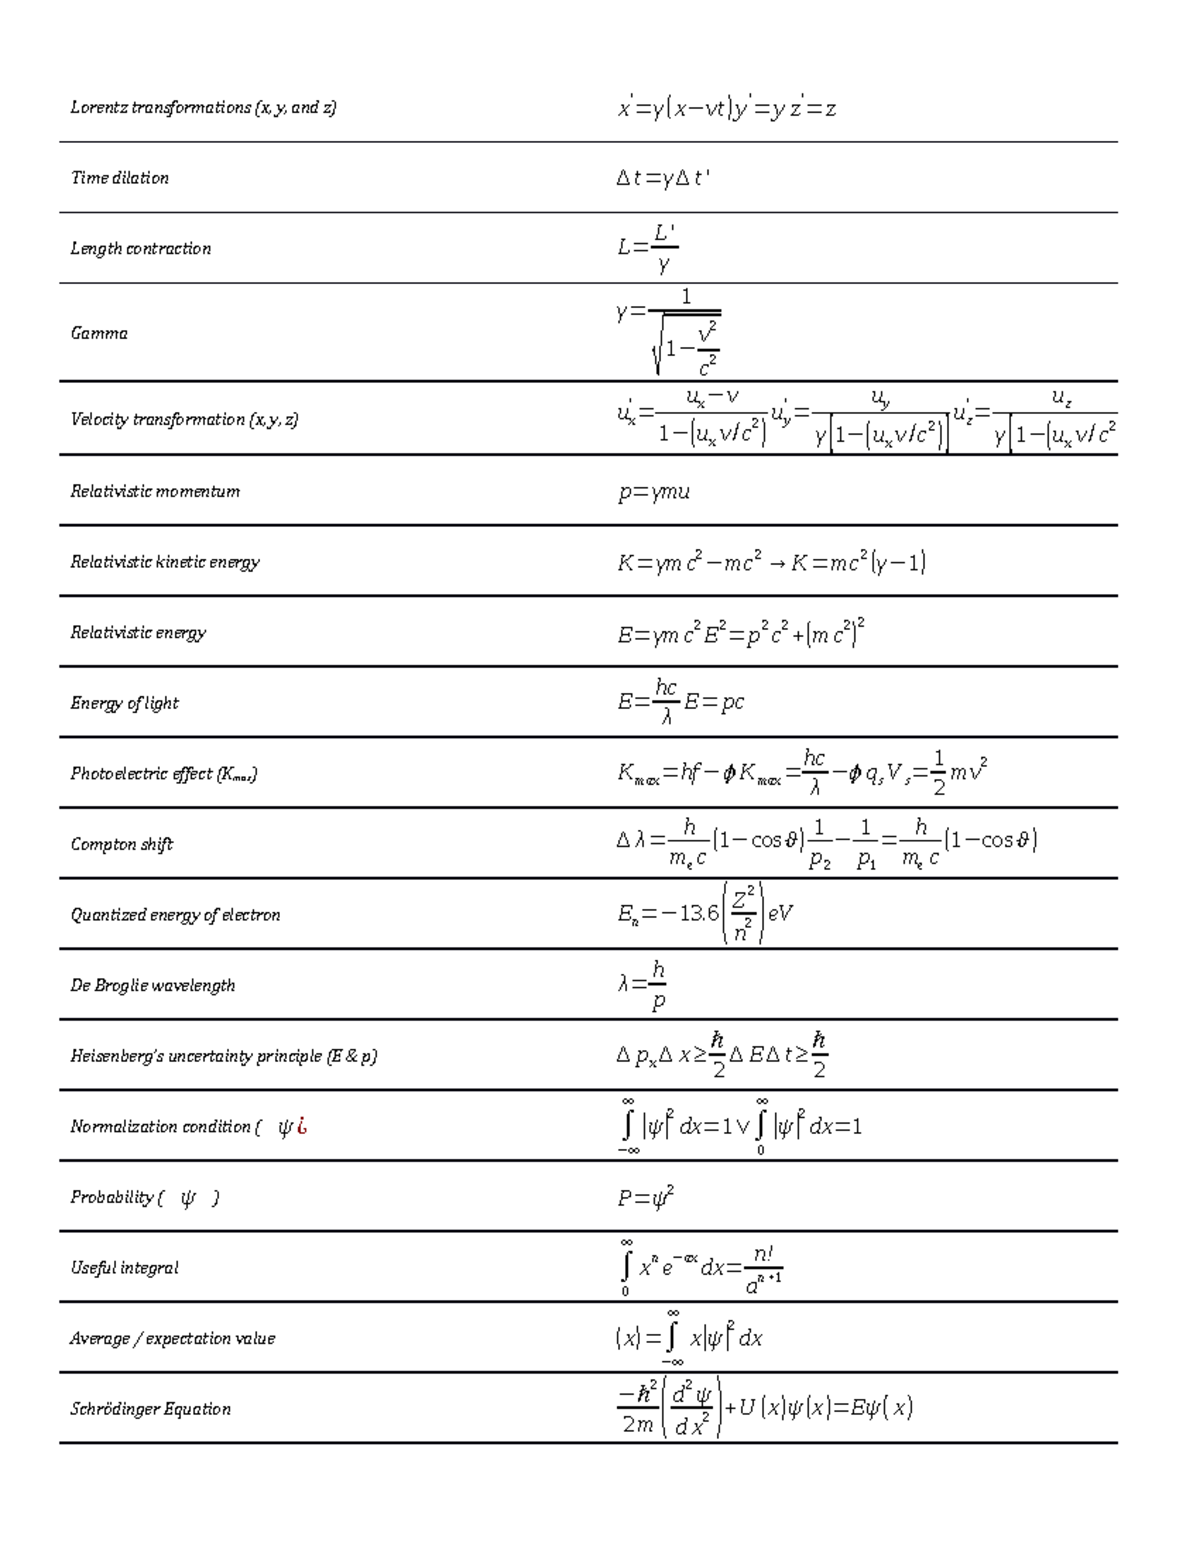 Lorentz transformations (x, y, and z) x'=γ(x−vt) y'=y z'=z
Time dilation Δt=γΔt'
Length contraction L=L'/γ
Gamma γ=1/√(1−v²/c²)
Velocity transformation (x,y,z) u'ₓ=(uₓ−v)/(1−(uₓv/c²)) u'_y=u_y/(γ[1−(uₓv/c²)]) u'_z=u_z/(γ[1−(uₓv/c²
Relativistic momentum p=γmu
Relativistic kinetic energy K=γmc²−mc² → K=mc²(γ−1)
Relativistic energy E=γmc² E²=p²c²+(mc²)²
Energy of light E=hc/λ E=pc
Photoelectric effect (Kmax) Kmax=hf−ϕ Kmax=hc/λ−ϕ qₛVₛ=1/2 mv²
Compton shift Δλ=h/(mₑc)(1−cosϑ) 1/p₂−1/p₁=h/(mₑc)(1−cosϑ)
Quantized energy of electron Eₙ=−13.6(Z²/n²)eV
De Broglie wavelength λ=h/p
Heisenberg's uncertainty principle (E & p) ΔpₓΔx≥ℏ/2 ΔEΔt≥ℏ/2
Normalization condition ( ψ¿ ∫_−∞^∞|ψ|²dx=1∨∫_0^∞|ψ|²dx=1
Probability ( ψ ) P=ψ²
Useful integral ∫_0^∞ xⁿe^−αx dx=n!/aⁿ⁺¹
Average / expectation value ⟨x⟩=∫_−∞^∞ x|ψ|²dx
Schrödinger Equation −ℏ²/2m(d²ψ/dx²)+U(x)ψ(x)=Eψ(x)